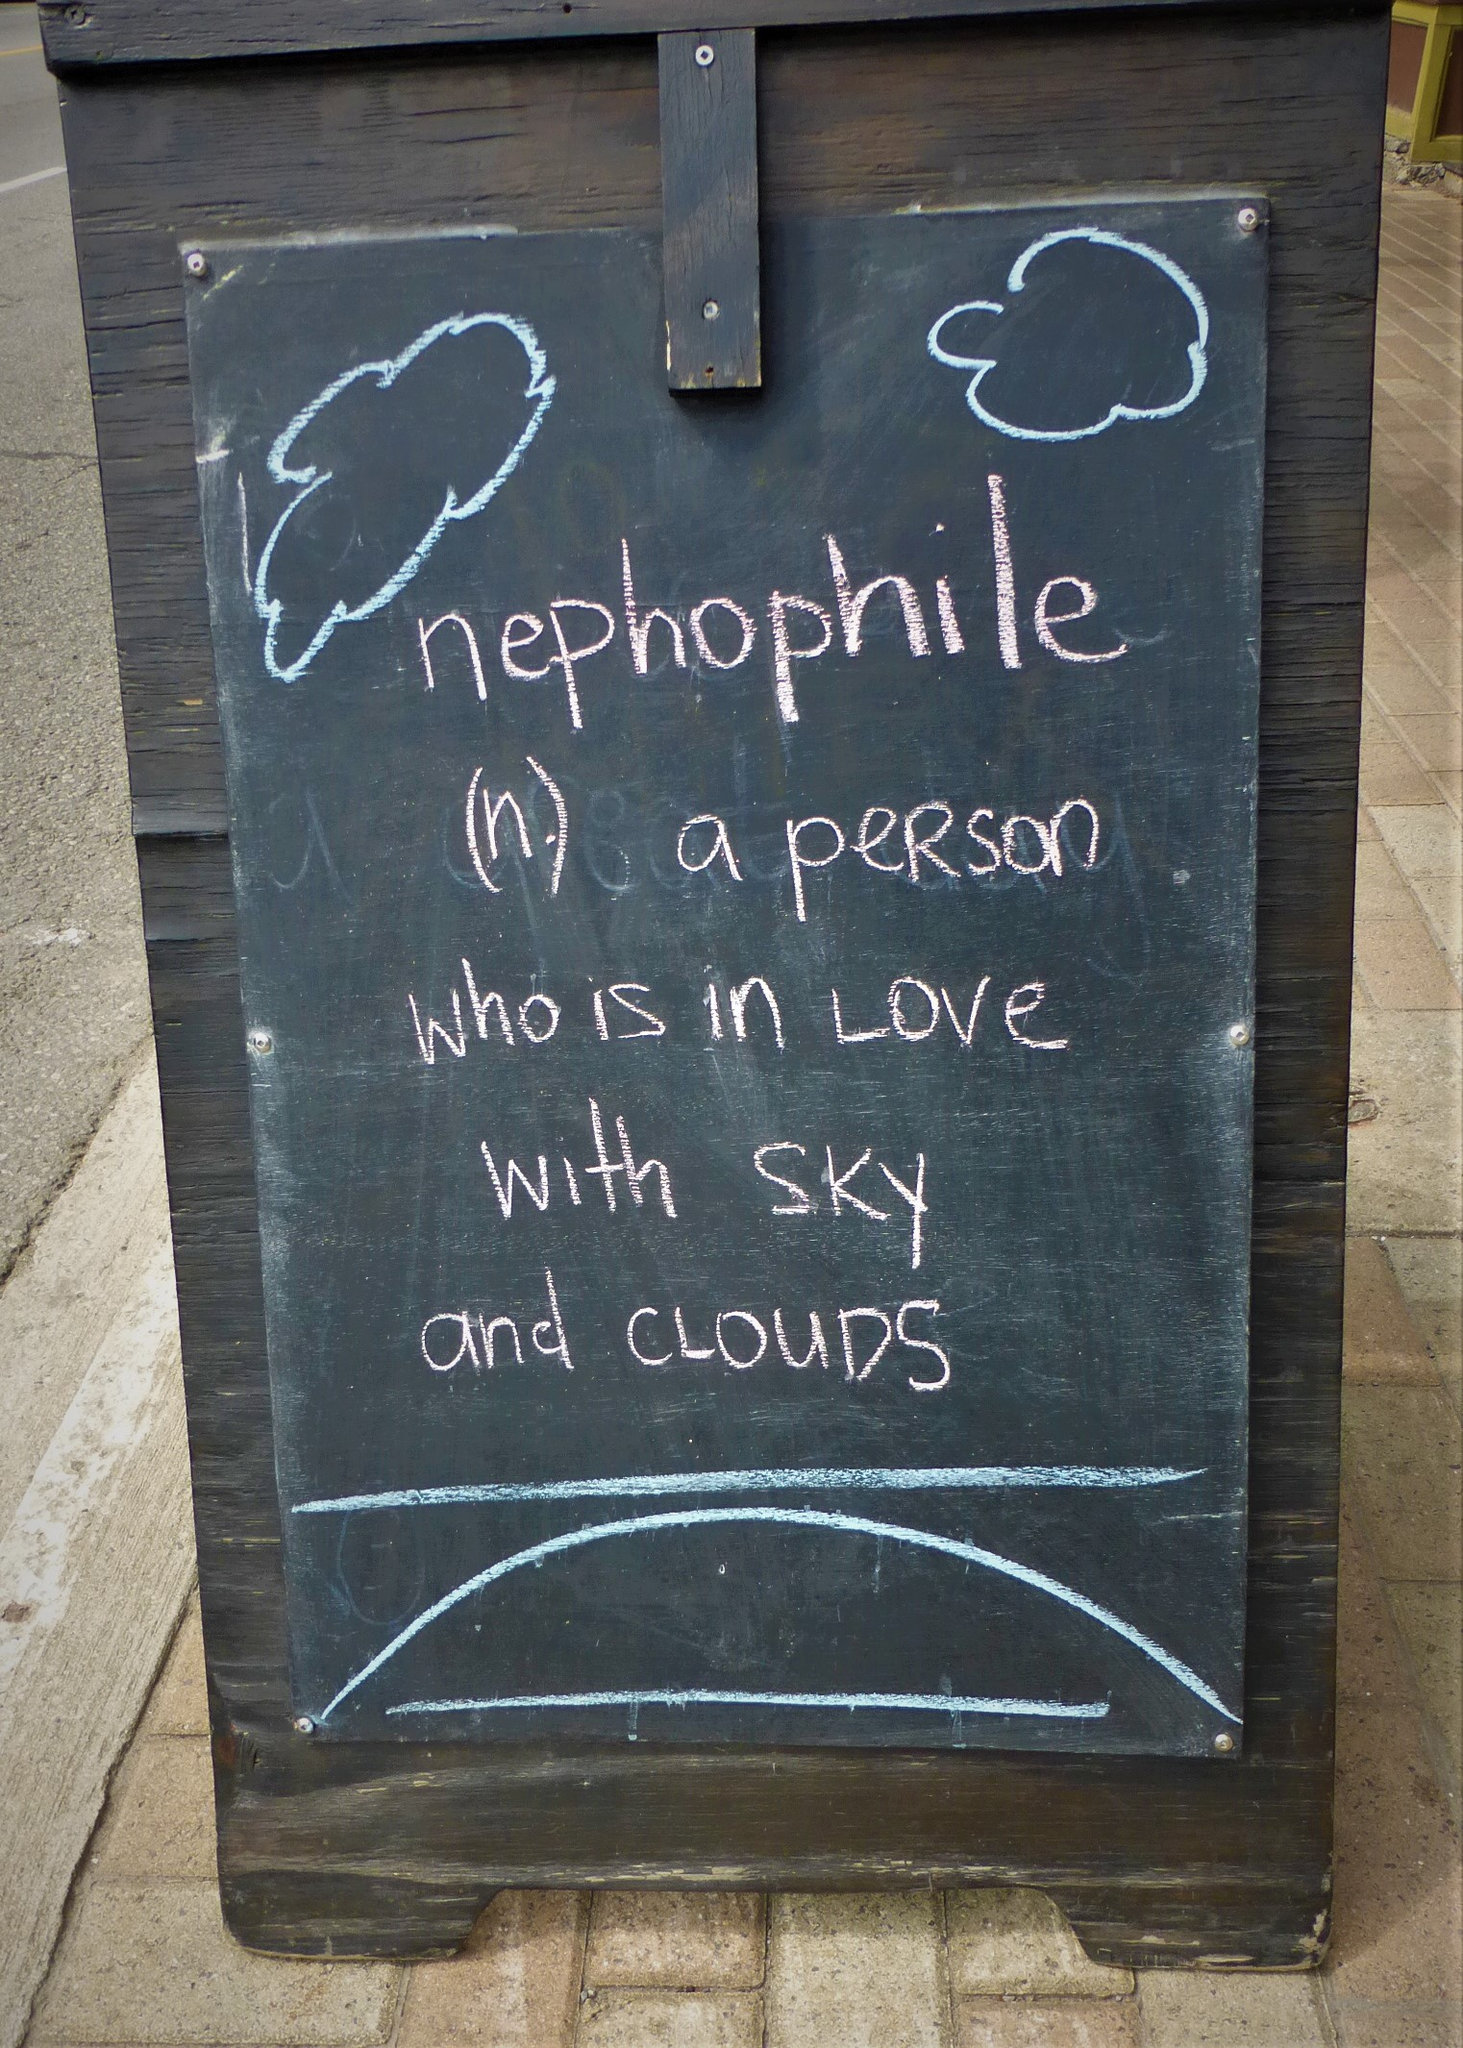 nephophile
(n.) a peRson
who is in LOVe
with SKy
and CLOUDS